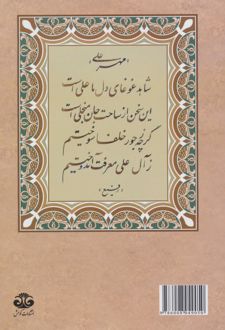 «مهر علی»
شاهد غوغای دل ما علی است
این سخن از ساحت جان منجلی است
گرچه ز جور خلفا سوختیم
ز آل علی معرفت آموختیم